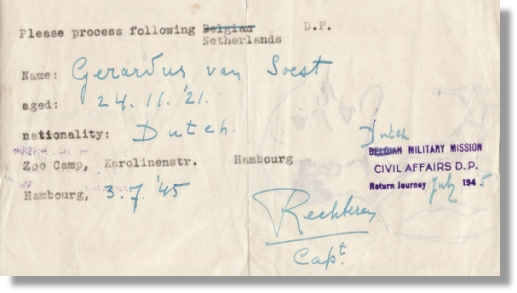 Please process following Belgian D.P.
Netherlands
Name: Gerardus van Soest
aged: 24.11.'21.
nationality: Dutch.
Zoo Camp, Karolinenstr. Hambourg
Hambourg, 3.7.'45
Dutch
BELGIAN MILITARY MISSION
CIVIL AFFAIRS D.P.
Return Journey July 1945
Rechteren
Capt.